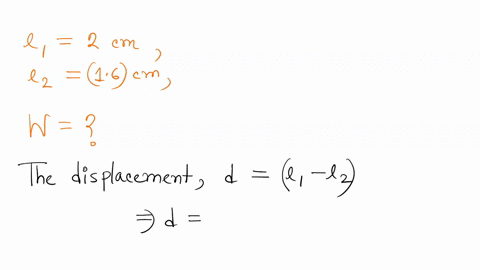 ℓ₁ = 2 cm,
ℓ₂ = (1.6) cm,
W = ?
The displacement, d = (ℓ₁ - ℓ₂)
⇒ d =